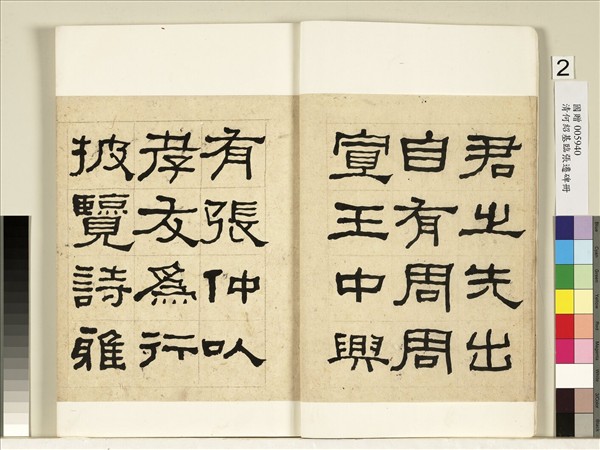 君之先出
自有周周
宣王中興
有張仲以
孝友為行
披覽詩雅
2
國贈 005940
清何紹基臨張遷碑冊